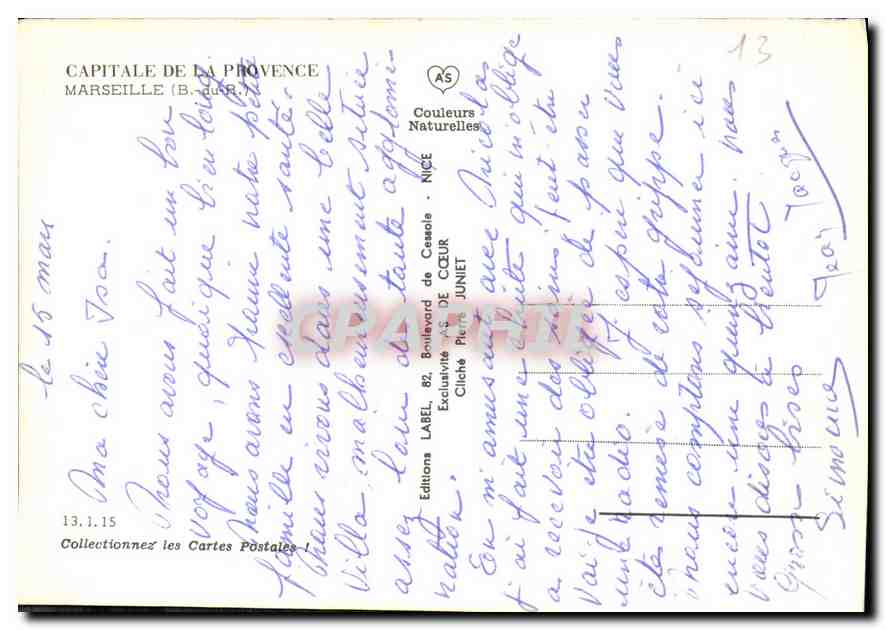 CAPITALE DE LA PROVENCE
MARSEILLE (B.-du-R.)
AS
Couleurs
Naturelles
13
le 15 mars
Ma chère Isa.
Nous avons fait un bon
voyage, quoique bien long.
Nous avons trouvé notre petite
famille en excellente santé.
Nous vivons dans une belle
villa, malheureusement située
assez loin de toute agglomé-
ration.
En m'amusant avec Nicolas
j'ai fait une chute qui m'oblige
a recevoir des soins, peut être
vai je etre obligée de passer
une radio. J'espère que vous
ête remise de votre grippe.
Nous comptons séjourner ici
encore une quinzaine. Nous
vous disons à bientôt.
Grosses bises
Simone
Jean Jacques
Editions LABEL, 82, Boulevard de Cessole - NICE
Exclusivité AS DE CŒUR
Cliché Pierre JUNIET
13.1.15
Collectionnez les Cartes Postales !
CPAPHIL